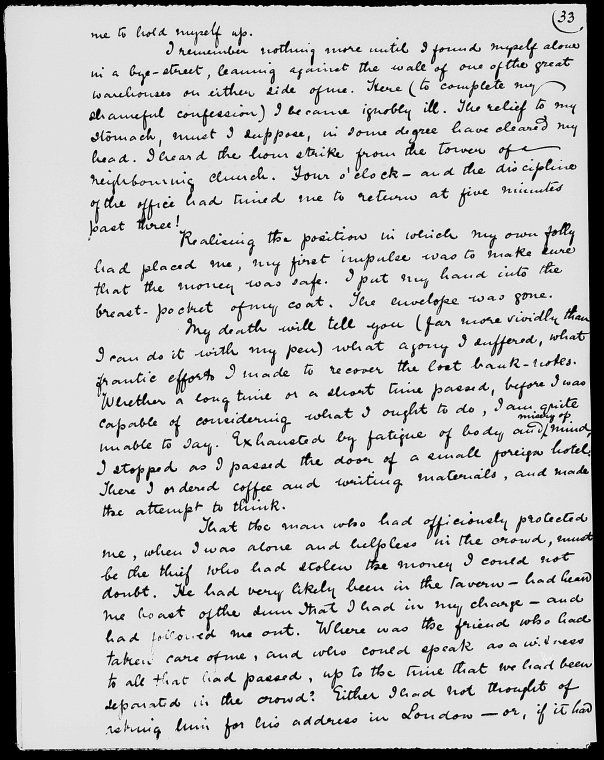 33
me to hold myself up.
I remember nothing more until I found myself alone
in a bye-street, leaning against the wall of one of the great
warehouses on either side of me. Here (to complete my
shameful confession) I became ignobly ill. The relief to my
stomach, must I suppose, in some degree have cleared my
head. I heard the hour strike from the tower of a
neighbouring church. Four o'clock — and the discipline
of the office had timed me to return at five minutes
past three!
Realising the position in which my own folly
had placed me, my first impulse was to make sure
that the money was safe. I put my hand into the
breast-pocket of my coat. The envelope was gone.
My death will tell you (far more vividly than
I can do it with my pen) what agony I suffered, what
frantic efforts I made to recover the lost bank-notes.
Whether a long time or a short time passed, before I was
capable of considering what I ought to do, I am quite
unable to say. Exhausted by fatigue of body and misery of mind,
I stopped as I passed the door of a small foreign hotel.
There I ordered coffee and writing materials, and made
the attempt to think.
That the man who had officiously protected
me, when I was alone and helpless in the crowd, must
be the thief who had stolen the money I could not
doubt. He had very likely been in the tavern — had heard
me boast of the sum that I had in my charge — and
had followed me out. Where was the friend who had
taken care of me, and who could speak as a witness
to all that had passed, up to the time that we had been
separated in the crowd? Either I had not thought of
asking him for his address in London — or, if it had